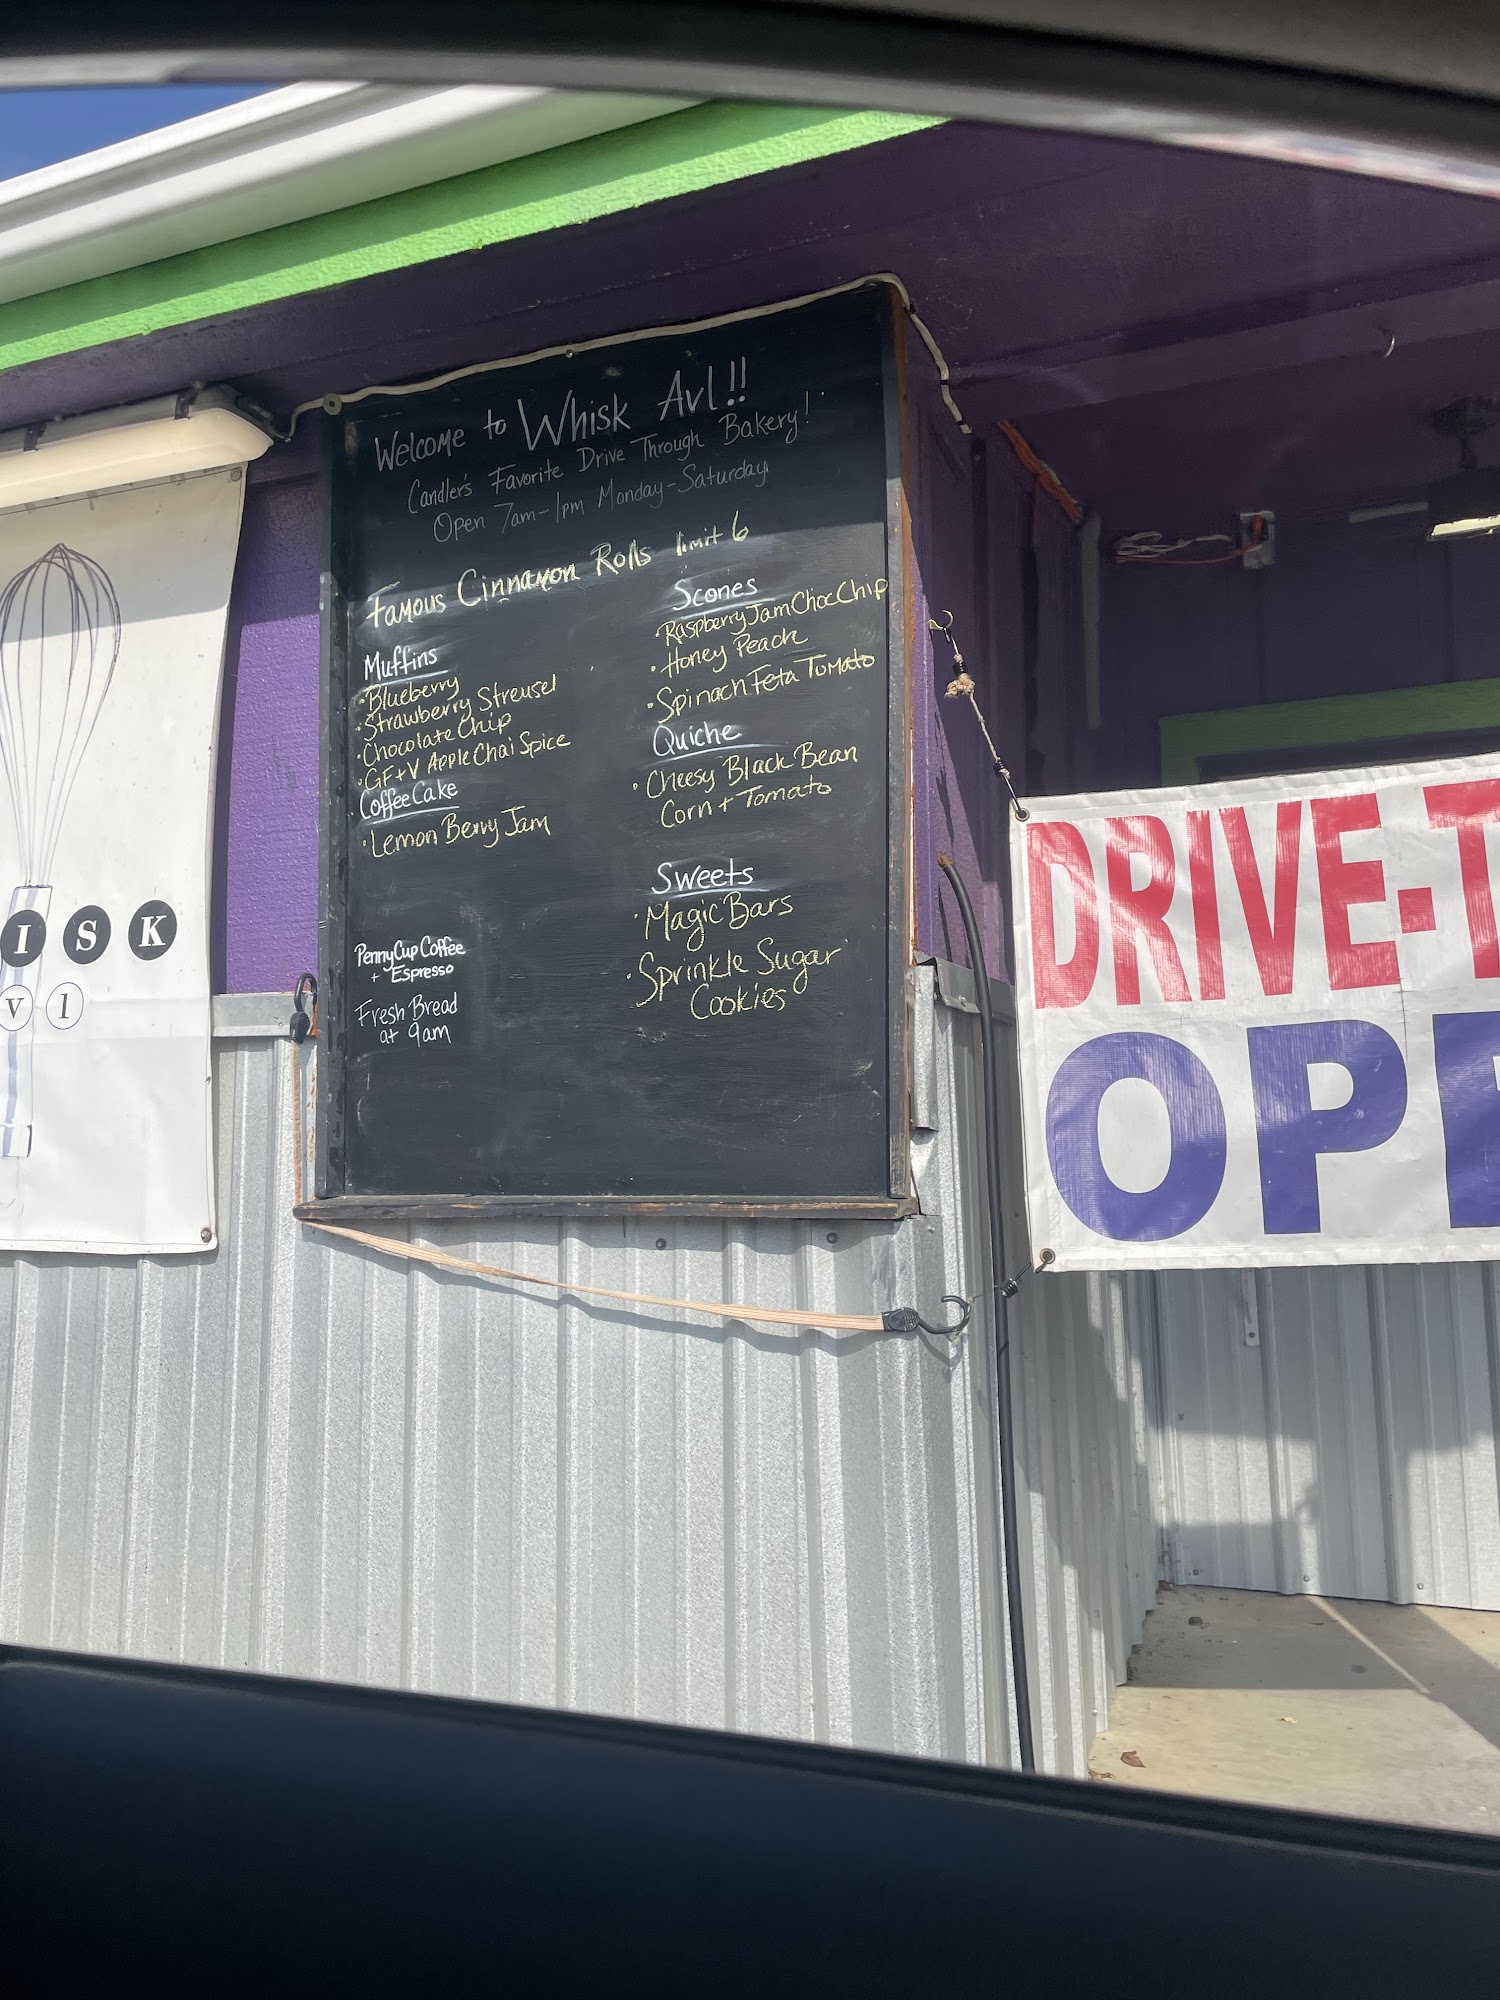 Welcome to Whisk Avl!!
Candler's Favorite Drive Through Bakery!
Open 7am-1pm Monday-Saturday
Famous Cinnamon Rolls limit 6
Muffins
• Blueberry
• Strawberry Streusel
• Chocolate Chip
• GF+V Apple Chai Spice
Coffee Cake
• Lemon Berry Jam
Penny Cup Coffee
+ Espresso
Fresh Bread
at 9am
Scones
• Raspberry Jam Choc Chip
• Honey Peach
• Spinach Feta Tomato
Quiche
• Cheesy Black Bean
Corn + Tomato
Sweets
• Magic Bars
• Sprinkle Sugar
Cookies
ISK
vl
DRIVE-T
OPE